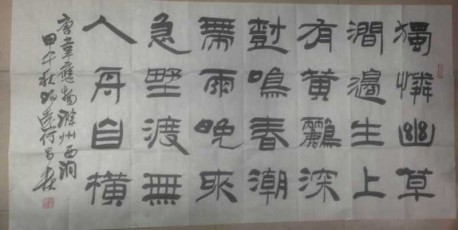 獨憐幽草
澗邊生上
有黃鸝深
樹鳴春潮
帶雨晚來
急野渡無
人舟自橫
唐韋應物滁州西澗
甲午秋書